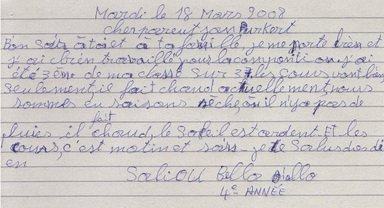 Mardi le 18 Mars 2008
cher parent jean Burkert
Bon soir à toi et à ta famille je me porte bien et
j'ai cbien travaillé pour la componition j'ai
été 3ème de ma classe sur 37 les cours vont bien
seulement il fait chaud actuellement nous
sommes en saisons sèche où il n'y a pas de
pluies, il fait chaud, le soleil est ardent Et les
cours, c'est matin et soir je te salus
en
SaliOU Bello Diallo
4e ANNÉE